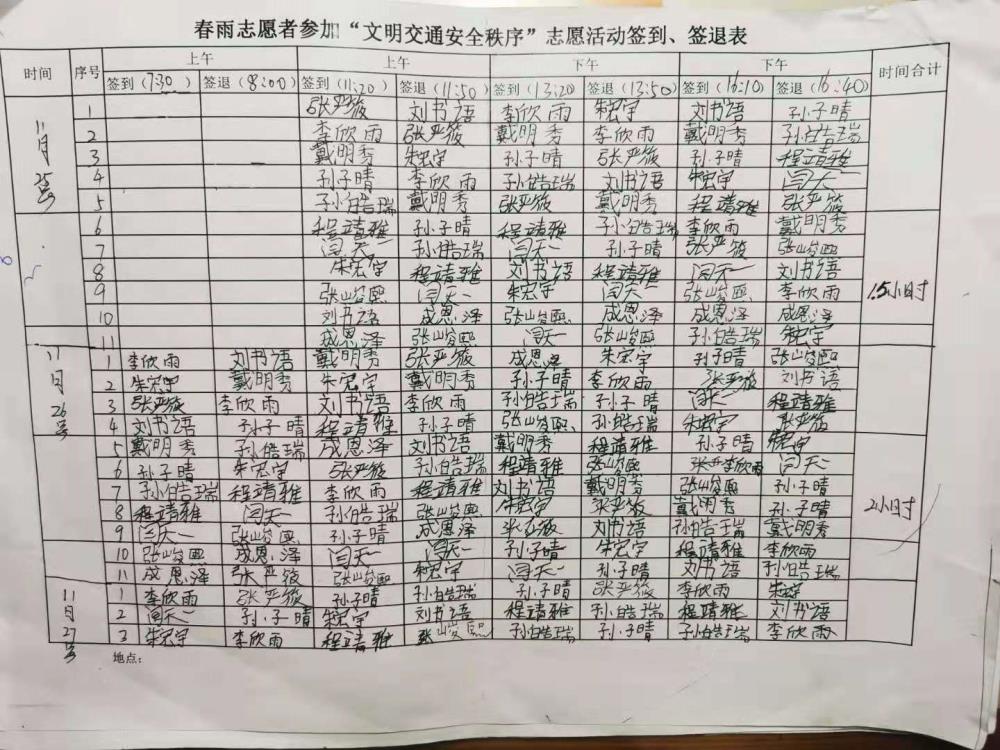 春雨志愿者参加“文明交通安全秩序”志愿活动签到、签退表
时间 序号 上午 上午 下午 下午 时间合计
签到(7:30) 签退(8:00) 签到(11:20) 签退(11:50) 签到(13:20) 签退(13:50) 签到(16:10) 签退(16:40)
11月25号
1 张严筱 刘书语 李欣雨 朱宏宇 刘书语 孙子晴
2 李欣雨 张严筱 戴明秀 李欣雨 戴明秀 孙皓瑞
3 戴明秀 朱宏宇 孙子晴 张严筱 孙子晴 程靖雅
4 孙子晴 李欣雨 孙皓瑞 刘书语 朱宏宇 闫天一
5 孙皓瑞 戴明秀 张严筱 戴明秀 程靖雅 张严筱
6 程靖雅 孙子晴 程靖雅 孙皓瑞 李欣雨 戴明秀
7 闫天一 孙皓瑞 闫天一 孙子晴 张严筱 张峻熙
8 朱宏宇 程靖雅 刘书语 程靖雅 闫天一 刘书语
9 张峻熙 闫天一 朱宏宇 闫天一 张峻熙 李欣雨 1.5小时
10 刘书语 成恩泽 张峻熙 成恩泽 成恩泽 成恩泽
11 成恩泽 张峻熙 闫天一 张峻熙 孙皓瑞 朱宏宇
11月26号
1 李欣雨 刘书语 戴明秀 张严筱 成恩泽 朱宏宇 孙子晴 张峻熙
2 朱宏宇 戴明秀 朱宏宇 戴明秀 孙子晴 李欣雨 张严筱 刘书语
3 张严筱 李欣雨 刘书语 李欣雨 孙皓瑞 孙子晴 闫天一 程靖雅
4 刘书语 孙子晴 程靖雅 孙子晴 张峻熙 孙皓瑞 朱宏宇 张严筱
5 戴明秀 孙皓瑞 成恩泽 刘书语 戴明秀 程靖雅 孙子晴
6 孙子晴 朱宏宇 张严筱 孙皓瑞 程靖雅 张峻熙 李欣雨 闫天一
7 孙皓瑞 程靖雅 李欣雨 程靖雅 刘书语 戴明秀 张峻熙 孙子晴
8 程靖雅 闫天一 孙皓瑞 张峻熙 朱宏宇 张严筱 戴明秀 孙子晴 2小时
9 闫天一 张峻熙 孙子晴 成恩泽 刘书语 孙皓瑞 戴明秀
10 张峻熙 成恩泽 闫天一 闫天一 孙子晴 朱宏宇 程靖雅 李欣雨
11 成恩泽 张严筱 张峻熙 朱宏宇 闫天一 孙子晴 刘书语 孙皓瑞
11月27号
1 李欣雨 张严筱 孙子晴 孙皓瑞 孙子晴 张严筱 李欣雨 朱宏宇
2 闫天一 孙子晴 朱宏宇 刘书语 程靖雅 孙皓瑞 程靖雅 刘书语
3 朱宏宇 李欣雨 程靖雅 张峻熙 孙皓瑞 孙子晴 孙皓瑞 李欣雨
地点：